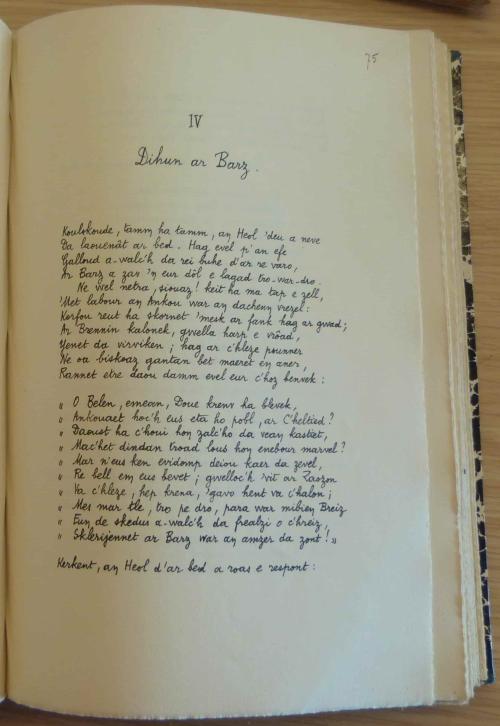 75
IV
Dihun ar Barz.
Koulskoude, tamm ha tamm, an Heol 'deu a neve
Da laouenât ar bed. Hag evel p'an efe
Galloud a-walc'h da rei buhe d'ar re varo,
Ar Barz a zav 'n eur dôl e lagad tro-war-dro.
Ne wel netra, siouaz! keit ha ma tap e zell,
'Met labour an Ankou war an dachenn vrezel:
Korfou reut ha skornet 'mesk ar fank hag ar gwad;
Ar Brennin kalonek, gwella harp e vrôad,
Yenet da virviken; hag ar c'hleze pounner
Ne oa biskoaz gantan bet maeret en aner,
Rannet etre daou damm evel eur c'hoz benvek:
„ O Belen, emean, Doue krenv ha blevek,
„ Ankouaet hoc'h eus eta ho pobl, ar C'heltied?
„ Daoust ha c'houi hon zalc'ho da vean kastiet,
„ Mac'het dindan troad lous hon enebour marvel?
„ Mar n'eus ken evidomp deiou kaer da zevel,
„ Re bell em eus bevet; gwelloc'h 'vit ar Saozon
„ Va c'hleze, hep krena, 'gavo hent va c'halon;
„ Mes mar tle, tro pe dro, para war mibien Breiz
„ Eun de skedus a-walc'h da frealzi o c'hreiz,
„ Sklerijennet ar Barz war an amzer da zont! „
Kerkent, an Heol d'ar bed a roas e respont: